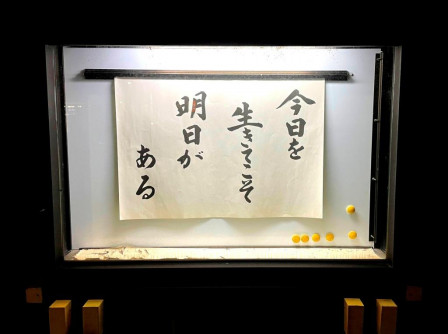 今日を
生きてこそ
明日が
ある